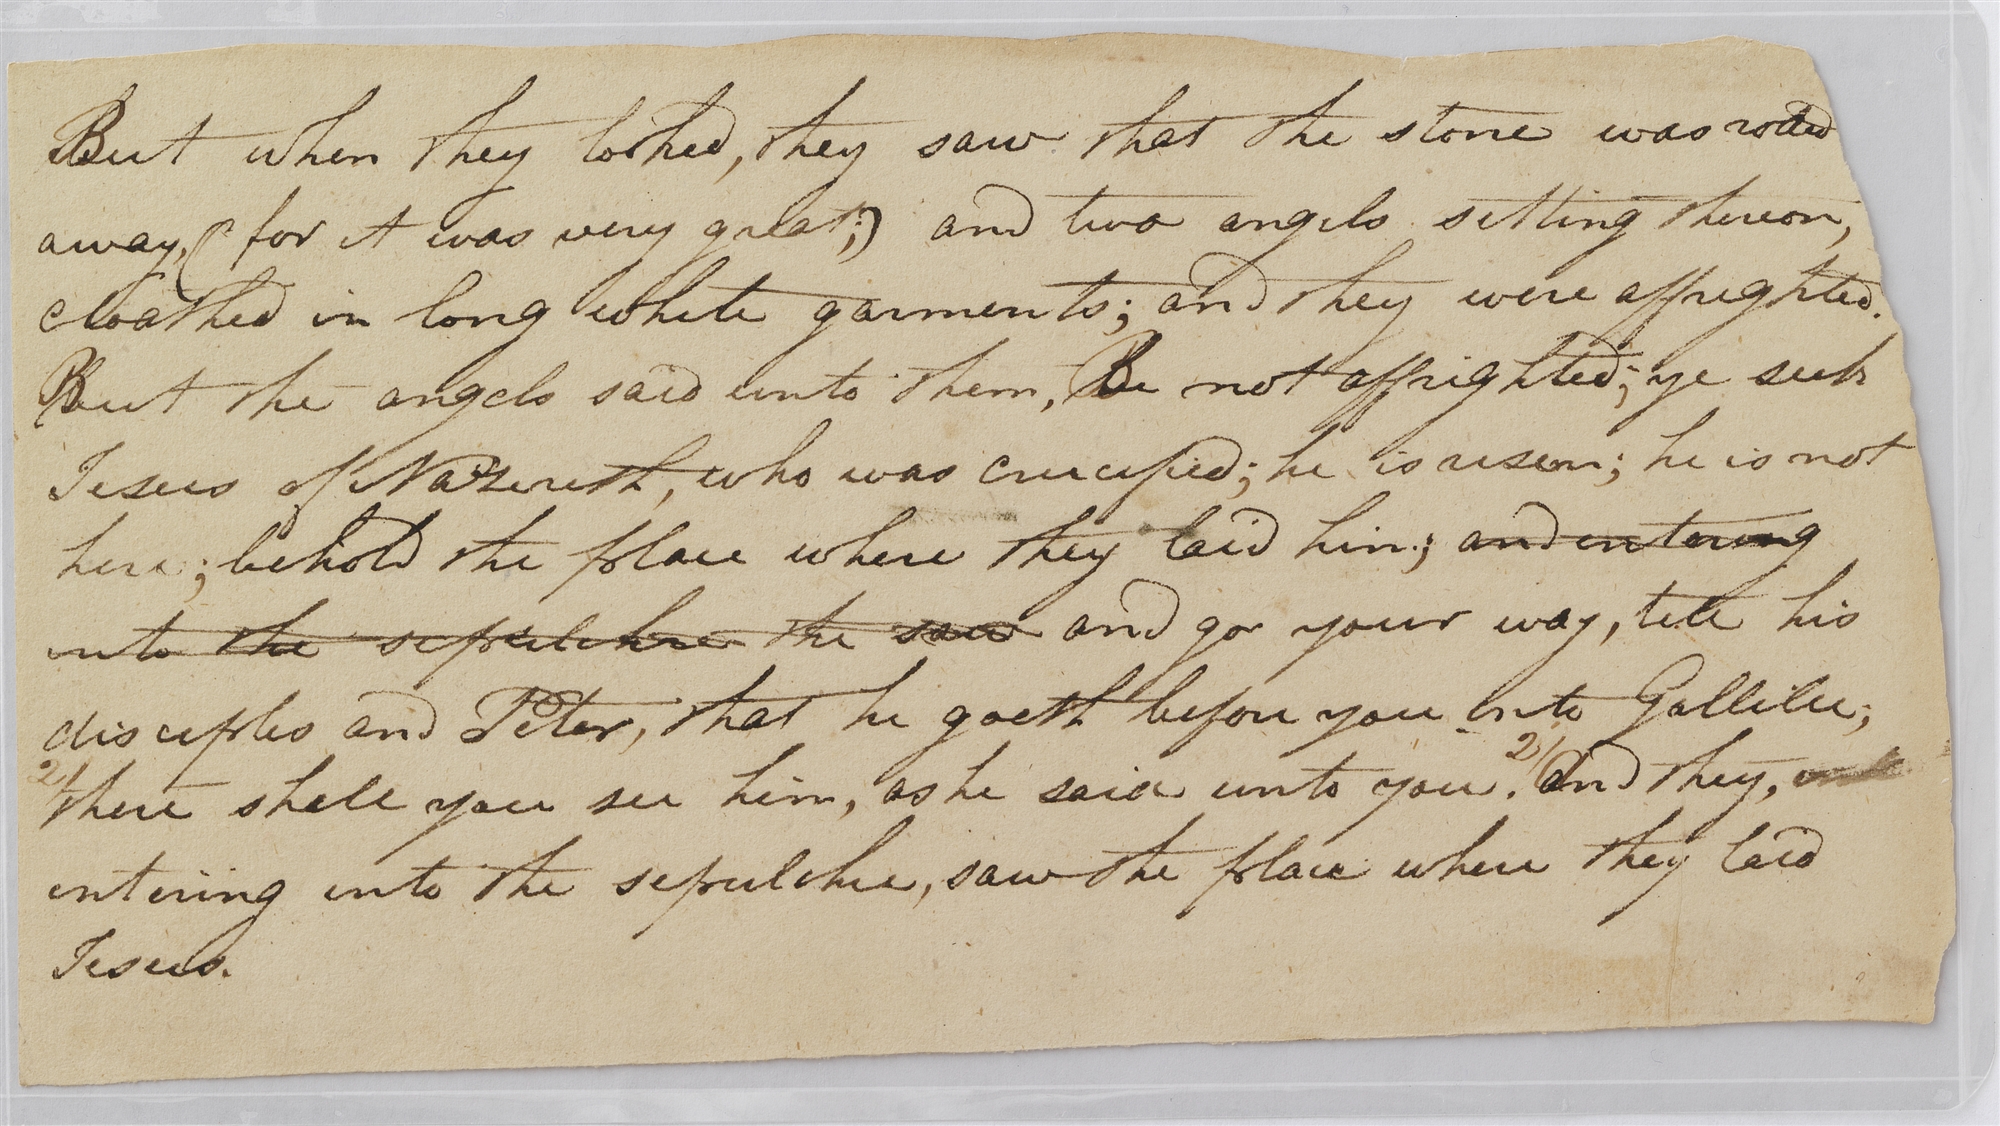 But when they looked, they saw that the stone was rolled
away, (for it was very great;) and two angels sitting thereon,
cloathed in long white garments; and they were affrighted.
But the angels said unto them, Be not affrighted; ye seek
Jesus of Nazereth, who was crucified; he is risen; he is not
here; behold the place where they laid him; and entering
into the sepulchre the saw and go your way, tell his
disciples and Peter, that he goeth before you into Gallilee;
21/ there shall you see him, as he said unto you. 21/ And they,
entering into the sepulchre, saw the place where they laid
Jesus.